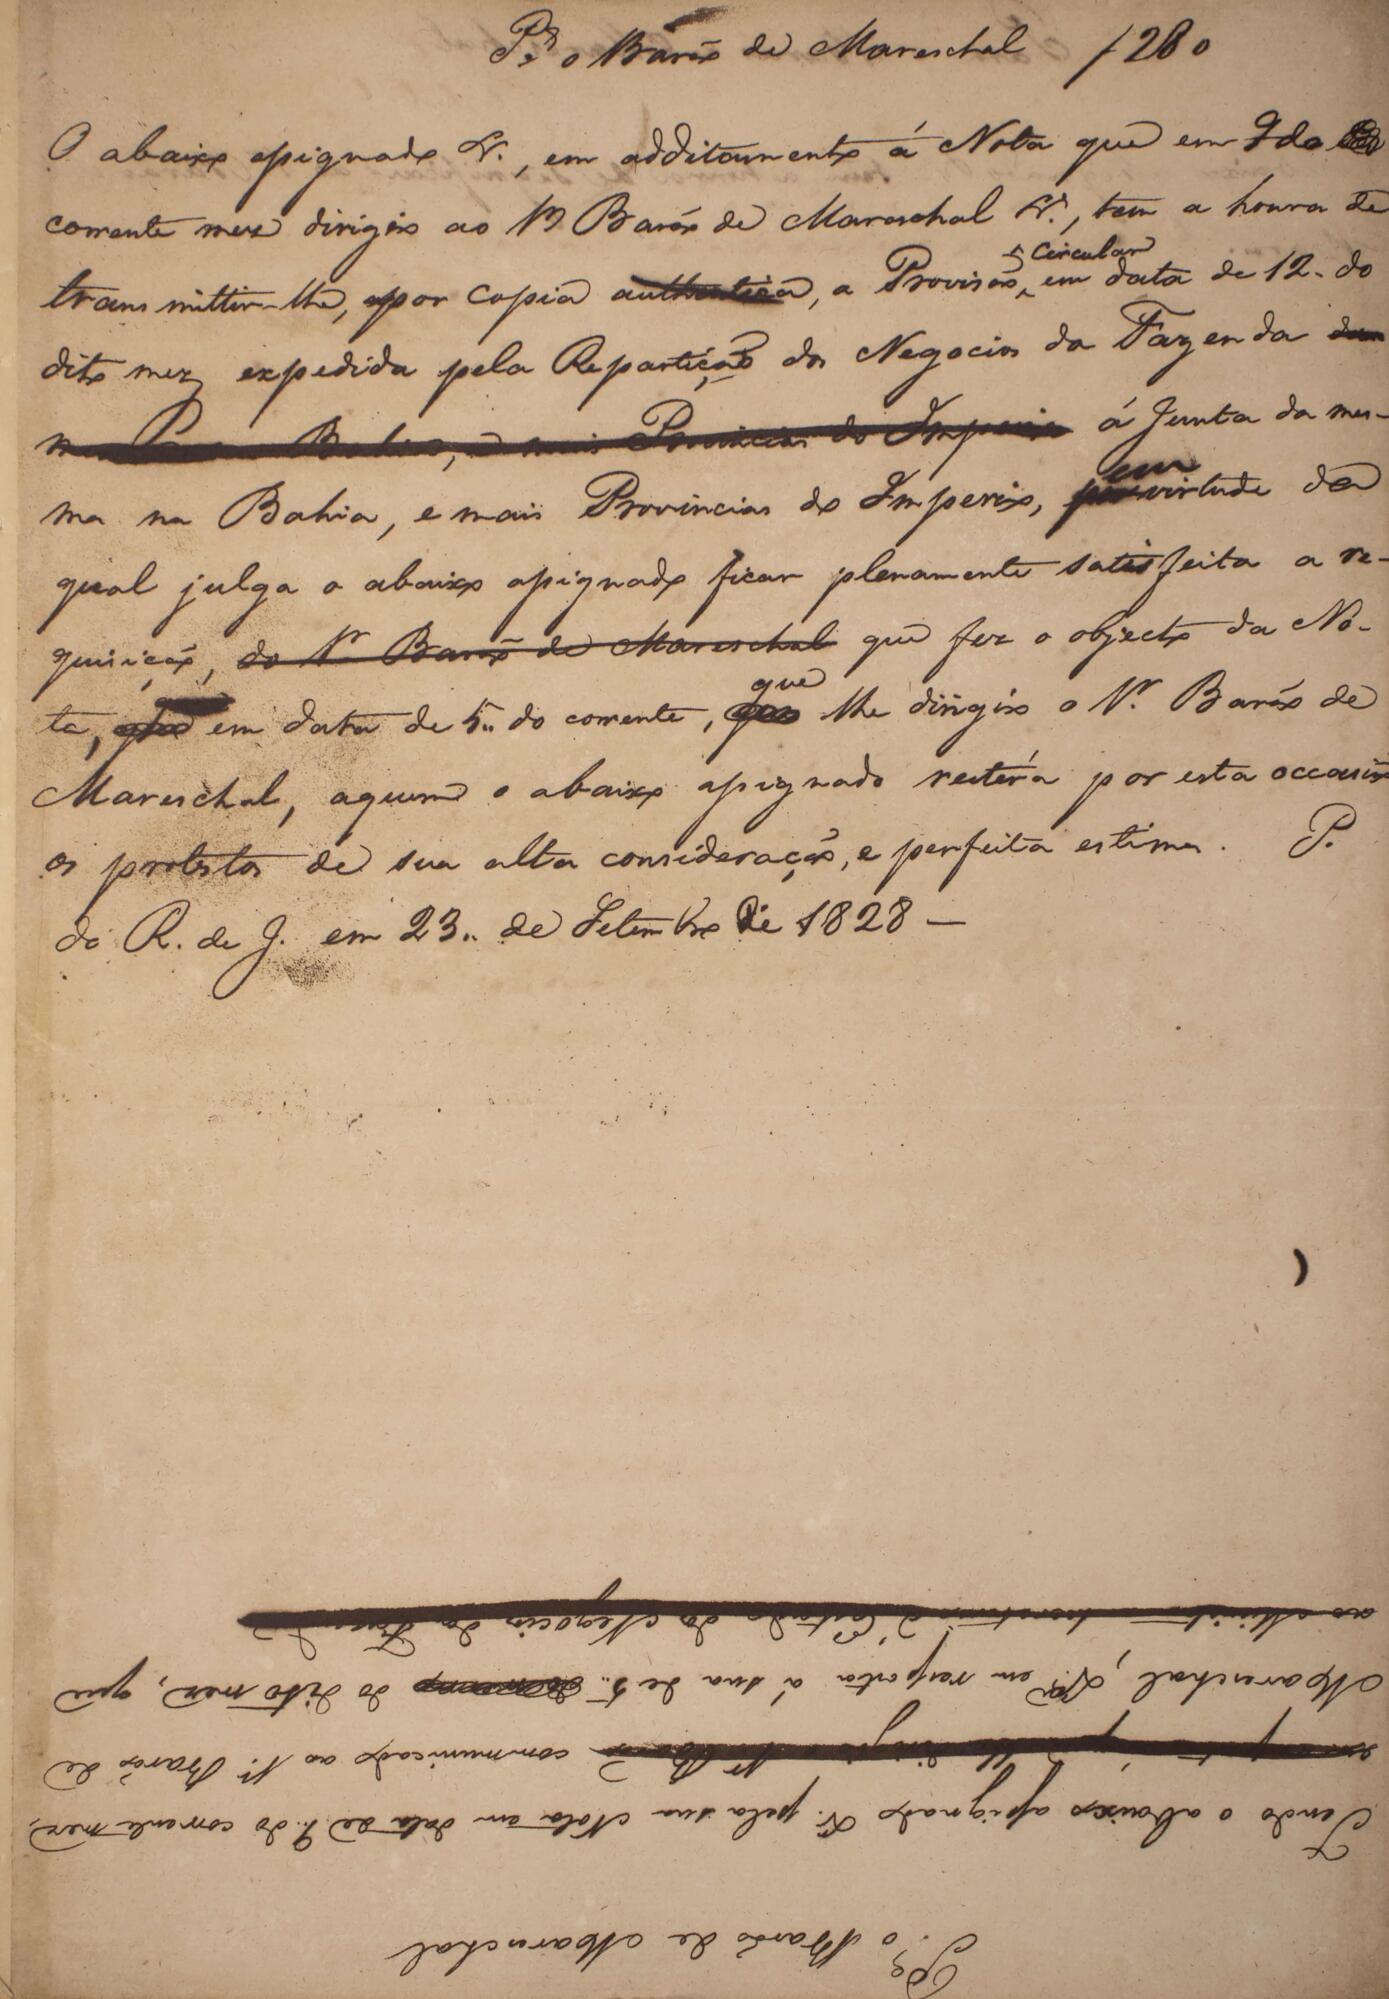 Pª o Barão de Mareschal /280
O abaixo assignado &., em additamento á Nota que em 9 do
corrente mez dirigio ao Sr Barão de Mareschal &ª., tem a honra de
transmittir-lhe, por copia authentica, a Provisão Circular em data de 12. do
dito mez expedida pela Repartição dos Negocios da Fazenda
Bahia, e mais Provincias do Imperio á Junta da mes-
ma na Bahia, e mais Provincias do Imperio, em virtude da
qual julga o abaixo assignado ficar plenamente satisfeita a re-
quisição, do Sr Barão de Mareschal que fez o objecto da No-
ta, em data de 5.. do corrente, que lhe dirigio o Sr. Barão de
Mareschal, aquem o abaixo assignado reiterá por esta occasião
os protestos de sua alta consideração, e perfeita estima. P.
do R. de J. em 23.. de Setembro de 1828 —
Pª o Barão de Mareschal
Tendo o abaixo assignado &. pela sua Nota em data de 9.. do corrente mez,
communicado ao Sr. Barão de
Mareschal, &ª em resposta á sua de 5.. do dito mez, que
ao Ministro Secretario d'Estado dos Negocios da Fazenda